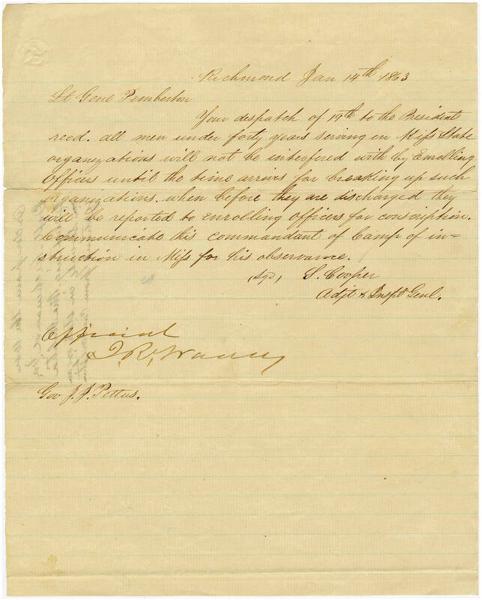 Richmond Jan 14th 1863.
Lt Genl Pemberton
Your despatch of to the President
recd. all men under forty years serving in Miss State
organizations will not be interfered with by Enrolling
Officers until the time arrives for breaking up such
organizations, when before they are discharged they
will be reported to enrolling officers for conscription.
Communicate this commandant of Camp of in=
struction in Miss for his observance.
S. Cooper
Adjt & Inspt Genl.
Official
Gov J. J. Pettus.